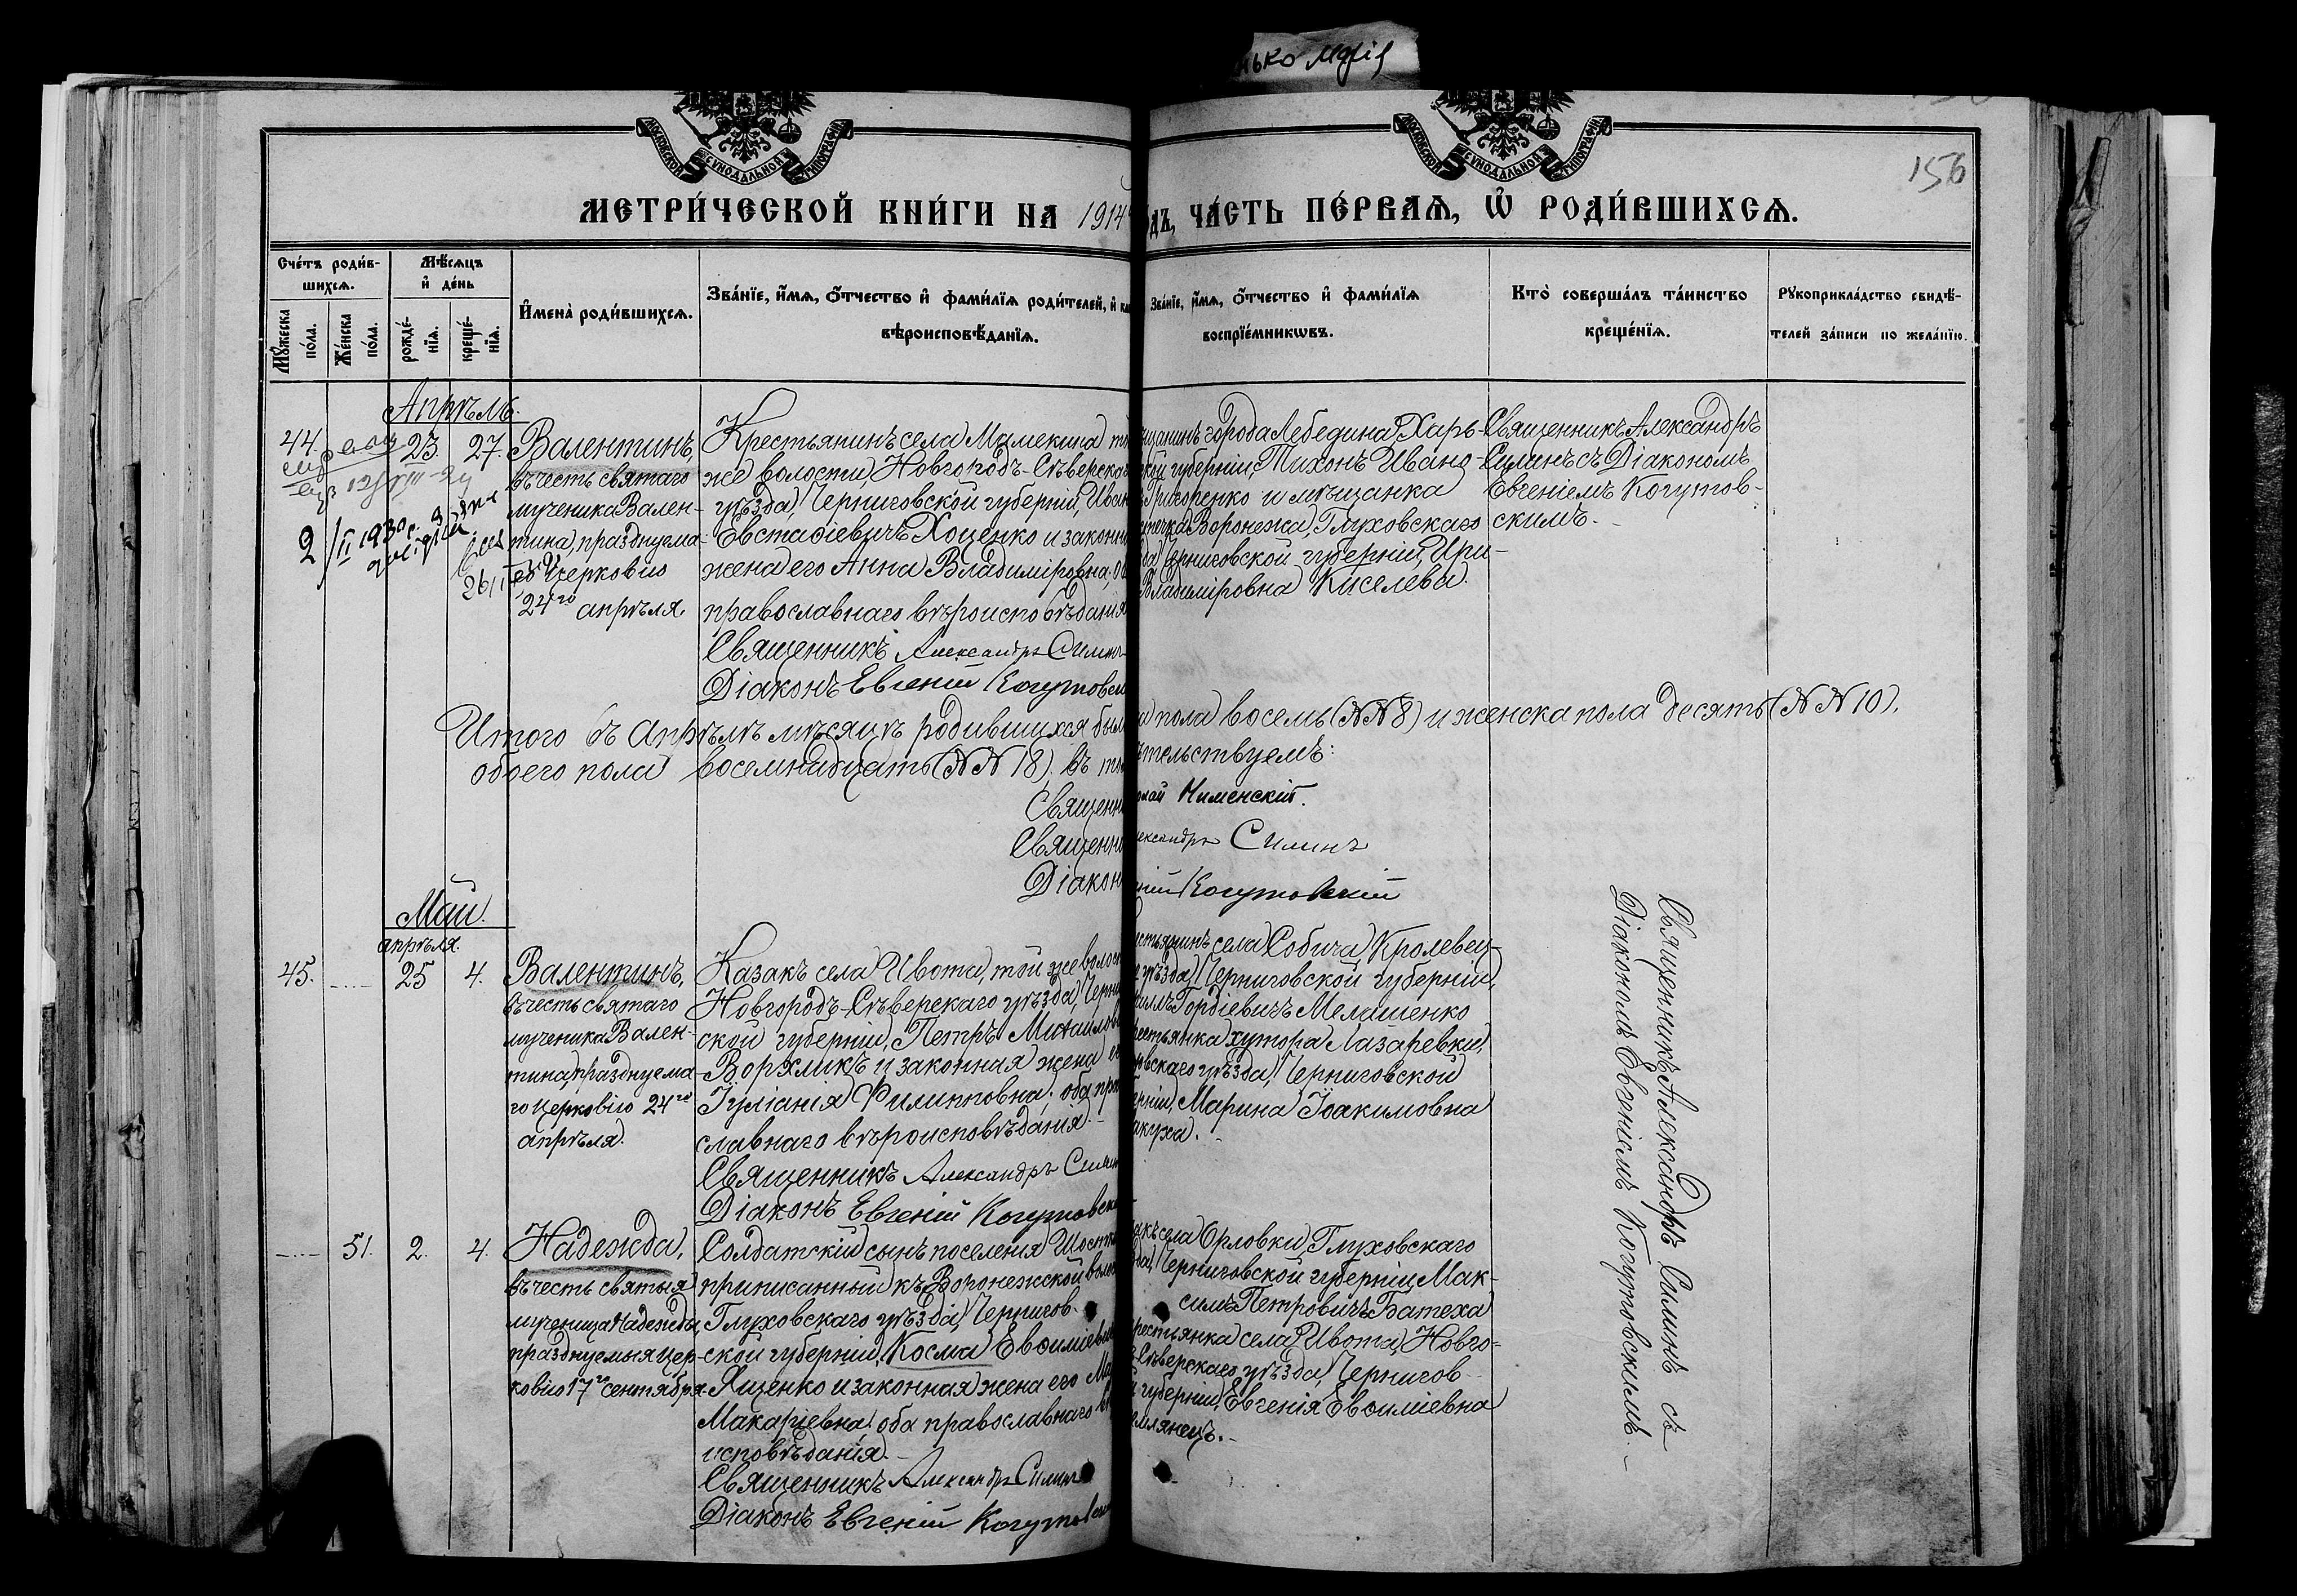 нько Марія
МОСКОВСКОЙ СѴНОДАЛЬНОЙ ТИПОГРАФІИ
МОСКОВСКОЙ СѴНОДАЛЬНОЙ ТИПОГРАФІИ
156
МЕТРИ́ЧЕСКОЙ КНИ́ГИ НА 1914
дъ, ЧА́СТЬ ПЕ́РВАѦ, Ѡ҆ РОДИ́ВШИХСѦ.
Сче́тъ роди́в-
шихсѧ.
Мꙋ́жеска по́ла.
Же́нска по́ла.
Мѣ́сѧцъ
и҆ де́нь
рожде́-
нїѧ.
креще́-
нїѧ.
И҆мена̀ роди́вшихсѧ.
Зва́нїе, и҆́мѧ, ѻ҆́тчество и҆ фами́лїѧ роди́телей, и҆ как
вѣроисповѣ́данїѧ.
Зва́нїе, и҆́мѧ, ѻ҆́тчество и҆ фами́лїѧ
воспрїе́мникѡвъ.
Кто̀ соверша́лъ та́инство
креще́нїѧ.
Рꙋкоприкла́дство свидѣ́-
телей за́писи по жела́нїю.
Апрѣль.
44. 23. 27.
2/II 1930 г.
26/I
Валентинъ,
въ честь святаго
мученика Вален-
тина, празднуема-
го Церковію
24го апрѣля.
Крестьянинъ села Мамекина той
же волости, Новгородъ-Сѣверскаго
уѣзда, Черниговской губерніи, Иван
Евстафіевичъ Хоценко и законна
жена его Анна Владиміровна, об
православнаго вѣроисповѣданія
Священникъ Александръ Силинъ
Діаконъ Евгеній Когутовск
щанинъ города Лебедина, Харь-
ской губерніи, Тихонъ Ивано-
Григоренко и мѣщанка
течка Воронежа, Глуховскаго
да Черниговской губерніи, Ири-
Владиміровна Киселева.
Священникъ Александръ
Силинъ съ Діакономъ
Евгеніемъ Когутов-
скимъ.
Итого въ Апрѣлѣ мѣсяцѣ родившихся был
а пола восемь (NN 8) и женска пола десять (NN 10),
обоего пола восемнадцать (NN 18). Въ том
ѣтельствуемъ:
Священни
олай Нименскій.
Священни
лександръ Силинъ
Діакон
ній Когутовскій
Май.
апрѣля.
45. 25 4.
Валентинъ,
въ честь святаго
мученика Вален-
тина, празднуема-
го Церковію 24го
апрѣля.
Казакъ села Ивота, той же волос
Новгородъ-Сѣверскаго уѣзда, Черни
ской губерніи, Петръ Михаилов
Ворхликъ и законная жена е
Іуліанія Филипповна, оба пра
славнаго вѣроисповѣданія.
Священникъ Александръ Силин
Діаконъ Евгеній Когутовск
естьянинъ села Собича, Кролевец-
уѣзда, Черниговской губерніи,
илъ Гордіевичъ Мелашенко
рестьянка хутора Лазаревки,
овскаго уѣзда, Черниговской
ерніи, Марина Іоакимовна
акуха.
Священникъ Александръ Силинъ съ
Діакономъ Евгеніемъ Когутовскимъ.
51. 2. 4.
Надежда,
въ честь святыя
мученицы Надежды,
празднуемыя Цер-
ковію 17го сентября.
Солдатскій сынъ поселенія Шостки
приписанный къ Воронежской волос
Глуховскаго уѣзда, Чернигов-
ской губерніи, Косма Евфиміевич
Ященко и законная жена его Ма
Макаріевна, оба православнаго вѣ
исповѣданія.
Священникъ Александръ Силинъ
Діаконъ Евгеній Когутовск
акъ села Орловки, Глуховскаго
да, Черниговской губерніи, Мак-
симъ Петровичъ Батеха
рестьянка села Ивота, Новго-
Сѣверскаго уѣзда, Чернигов-
губерніи, Евгенія Евфиміевна
емлянецъ.